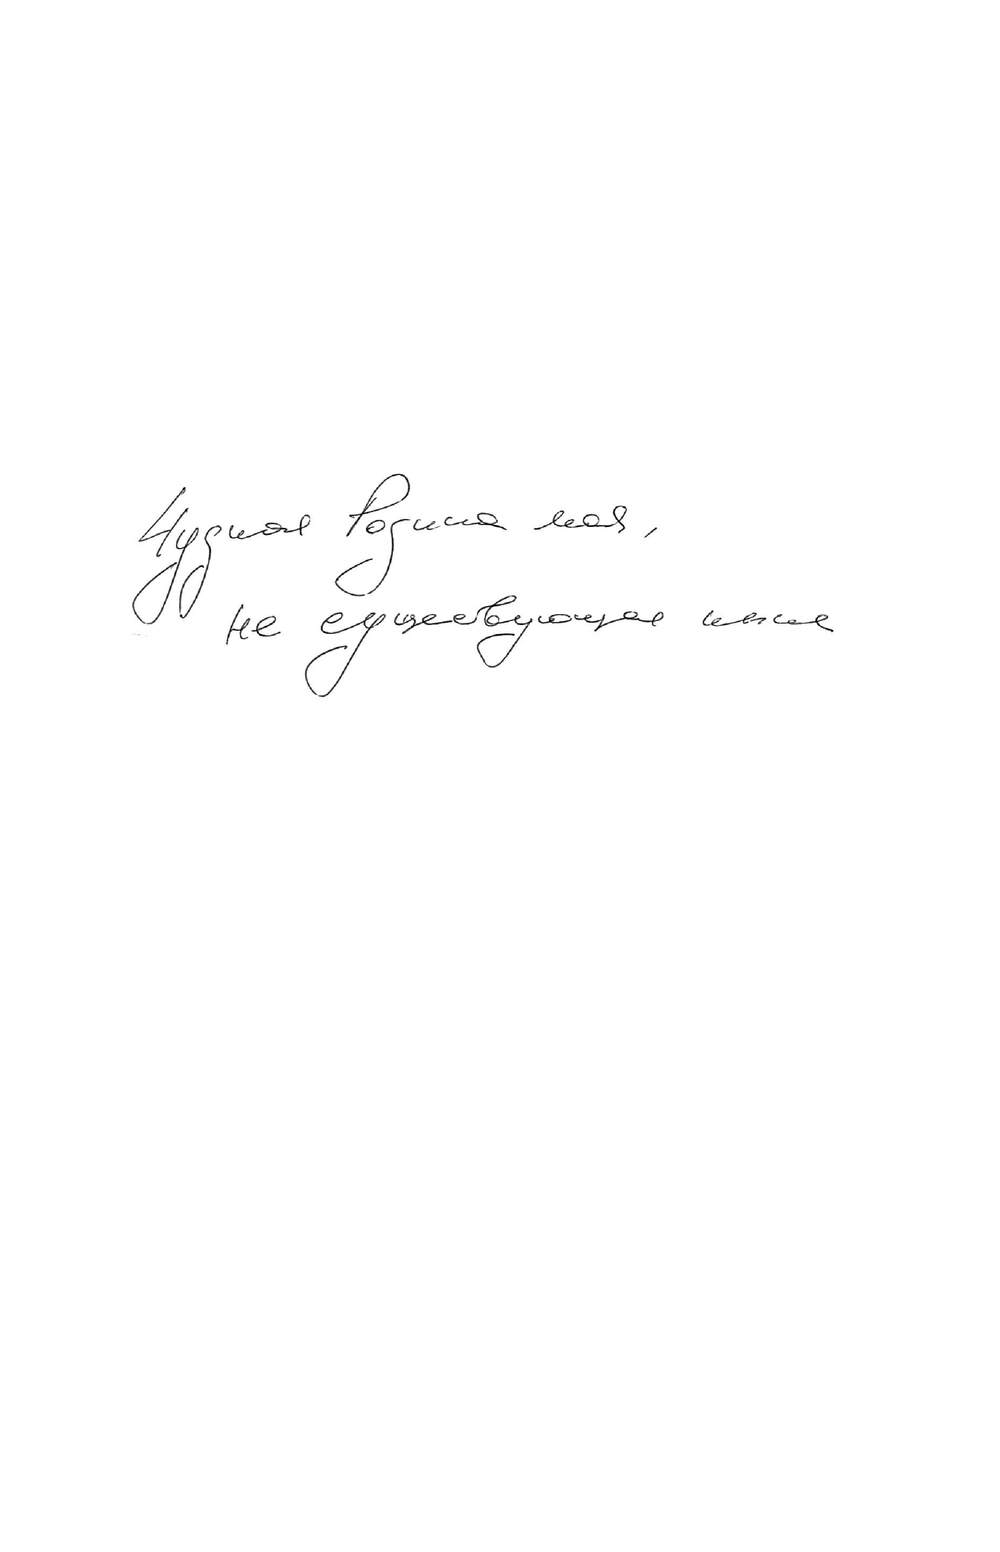 Чудная Родина моя,
не существующая ныне